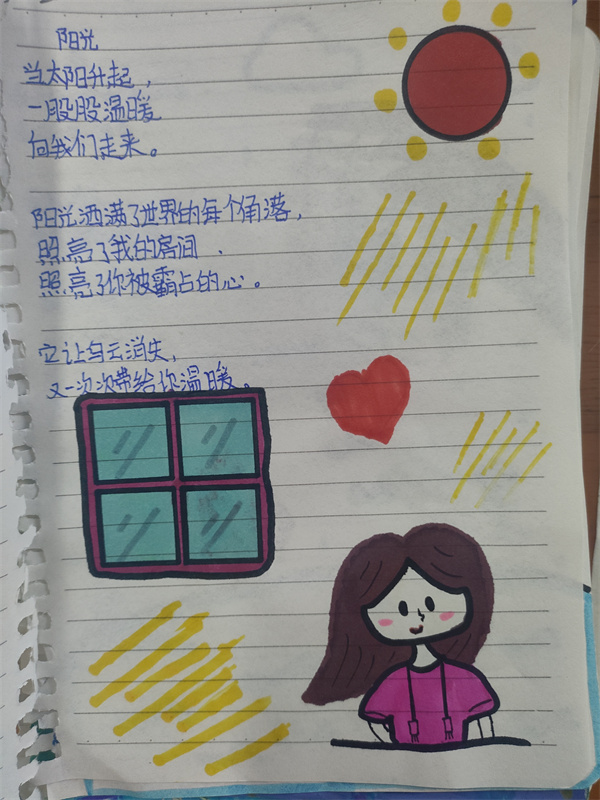 阳光
当太阳升起，
一股股温暖
向我们走来。
阳光洒满了世界的每个角落，
照亮了我的房间、
照亮了你被霸占的心。
它让乌云消失，
又一次次带给你温暖。